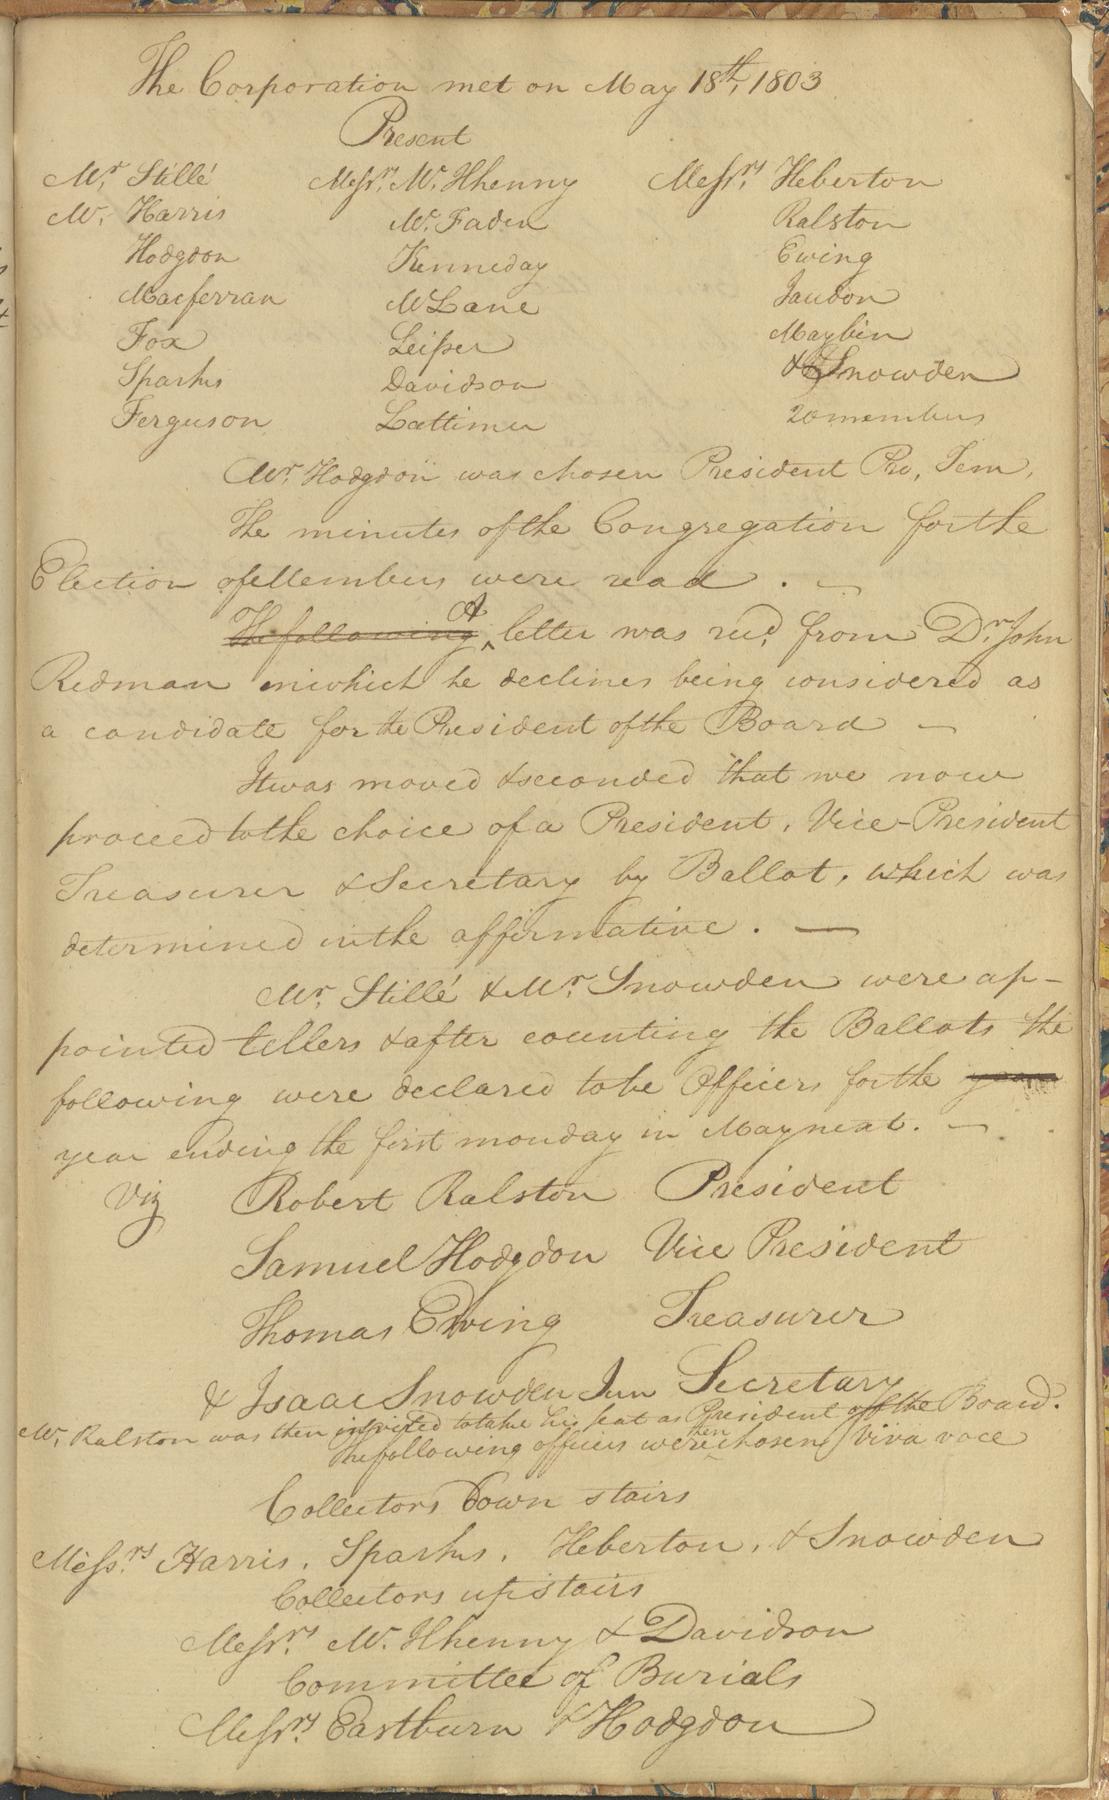 The Corporation met on May 18th, 1803
Present
Mr. Stillé Messrs. Mc. Ilhenny Messrs. Heberton
Mr. Harris Mc. Faden Ralston
Hodgdon Kenneday Ewing
Macferran McLane Jaudon
Fox Leiper Maybin
Sparks Davidson & Snowden
Ferguson Lattimer 20 members
Mr. Hodgdon was chosen President Pro, Tem,
The minutes of the Congregation for the
Election of Members were read . —
The following A letter was recd. from Dr. John
Redman in which he declines being considered as
a candidate for the President of the Board —
It was moved & seconded that we now
proceed to the choice of a President, Vice-President
Treasurer & Secretary by Ballot, which was
determined in the affirmative . —
Mr. Stillé & Mr. Snowden were ap-
pointed tellers & after counting the Ballots the
following were declared to be Officers for the year
year ending the first monday in May next. —
Viz Robert Ralston President
Samuel Hodgdon Vice President
Thomas Ewing Treasurer
& Isaac Snowden Jun Secretary
Mr. Ralston was then invited to take his seat as President of the Board.
The following officers were then chosen Viva voce
Collectors Down stairs
Messrs. Harris, Sparks, Heberton, & Snowden
Collectors up stairs
Messrs. Mc. Ilhenny & Davidson
Committee of Burials
Messrs. Eastburn & Hodgdon